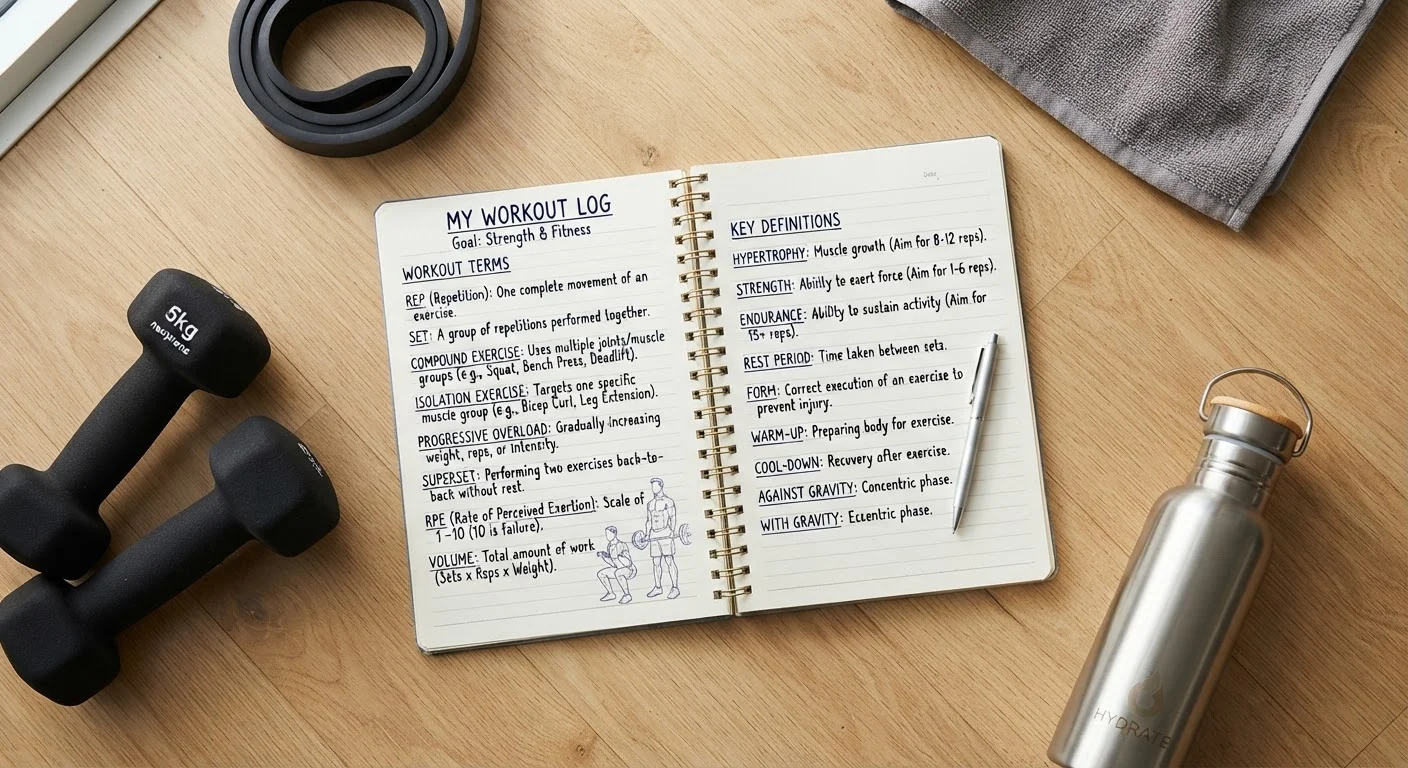 MY WORKOUT LOG
Goal: Strength & Fitness
WORKOUT TERMS
REP (Repetition): One complete movement of an
exercise.
SET: A group of repetitions performed together.
COMPOUND EXERCISE: Uses multiple joints/muscle
groups (e.g., Squat, Bench Press, Deadlift).
ISOLATION EXERCISE: Targets one specific
muscle group (e.g., Bicep Curl, Leg Extension).
PROGRESSIVE OVERLOAD: Gradually increasing
weight, reps, or intensity.
SUPERSET: Performing two exercises back-to-
back without rest.
RPE (Rate of Perceived Exertion): Scale of
1-10 (10 is failure).
VOLUME: Total amount of work
(Sets x Rsps x Weight).
KEY DEFINITIONS
HYPERTROPHY: Muscle growth (Aim for 8-12 reps).
STRENGTH: Ability to eaert force (Aim for 1-6 reps).
ENDURANCE: Ability to sustain activity (Aim for
15+ reps).
REST PERIOD: Time taken between sets.
FORM: Correct execution of an exercise to
prevent injury.
WARM-UP: Preparing body for exercise.
COOL-DOWN: Recuvery after exercise.
AGAINST GRAVITY: Concentric phase.
WITH GRAVITY: Eccentric phase.
5kg
HYDRATE